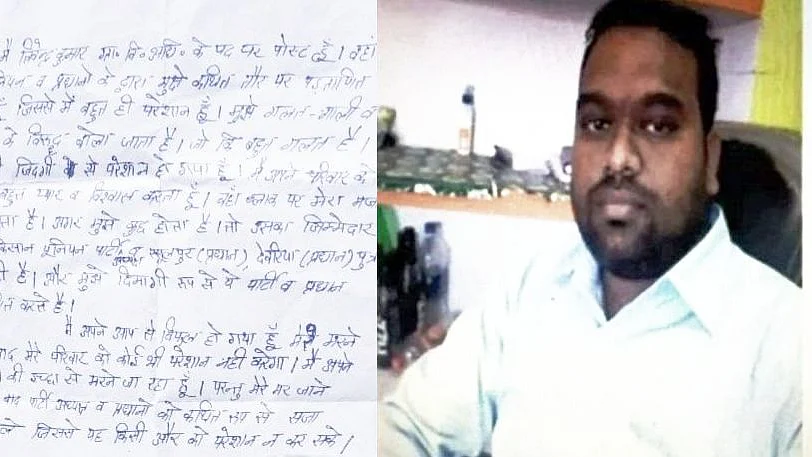 मैं त्रिवेन्द्र कुमार ग्रा० वि० अधि० के पद पर पोस्ट हूँ। वहाँ
व प्रधानो के द्वारा मुझे कथित तौर पर प्रताणित
जिससे मैं बहुत ही परेशान हूँ। मुझे गलत-गाली व
के विरूद्ध बोला जाता है। जो कि बहुत गलत है।
जिंदगी से परेशान हो गया हूँ। मैं अपने परिवार को
बहुत प्यार व विश्वास करता हूँ। वहाँ ब्लाक पर मेरा मजा
है। अगर मुझे कुछ होता है। तो इसका जिम्मेदार
किसान यूनियन पार्टी रसूलपुर (प्रधान), देवरिया (प्रधान) पुत्र
ही है। और मुझे दिमागी रूप से ये पार्टी व प्रधान
करते है।
मैं अपने आप से विफल हो गया हूँ। मेरे मरने
बाद मेरे परिवार को कोई भी परेशान नही करेगा। मैं अपने
की इच्छा से मरने जा रहा हूँ। परन्तु मेरे मर जाने
बाद पार्टी अध्यक्ष व प्रधानो को कथित रूप से सजा
जिससे यह किसी और को परेशान न कर सके।